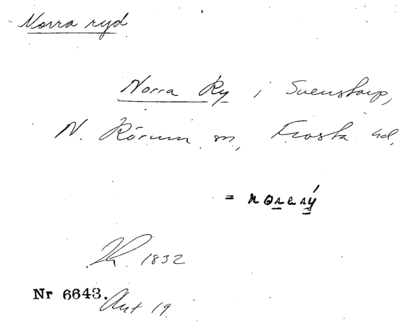 Norra ryd
Norra Ry i Svenstorp,
N. Rörum sn, Frosta hd,
= norarý
1832
Nr 6643. Ant 19